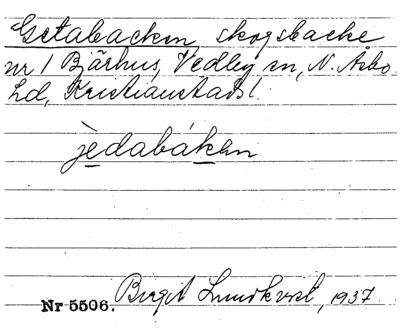 Getabacken skogsbacke
nr 1 Bjärhus, Vedby sn, N. Åsbo
hd, Kristianstads l.
jèdabákan
Birgit Lundkvist, 1937
Nr 5506.